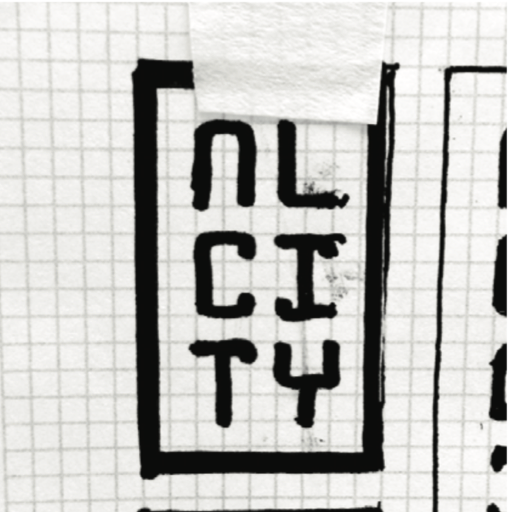 NL
CITY